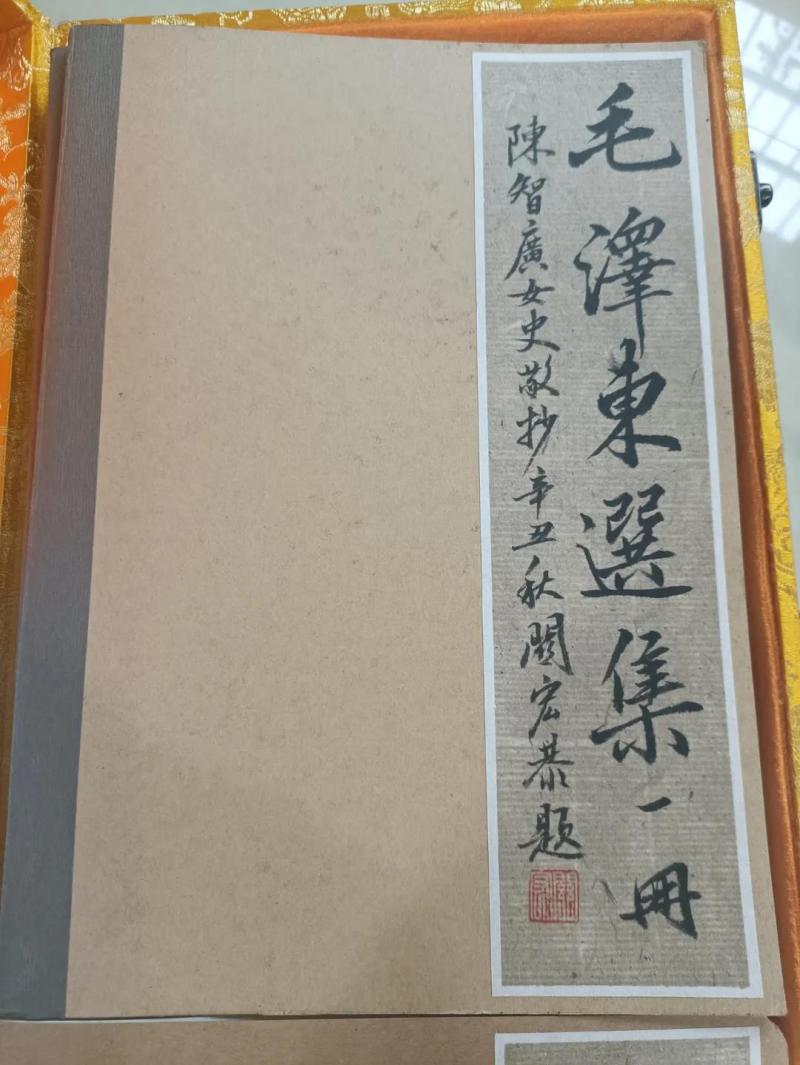 毛澤東選集一冊
陳智廣女史敬抄辛丑秋闕宏恭題